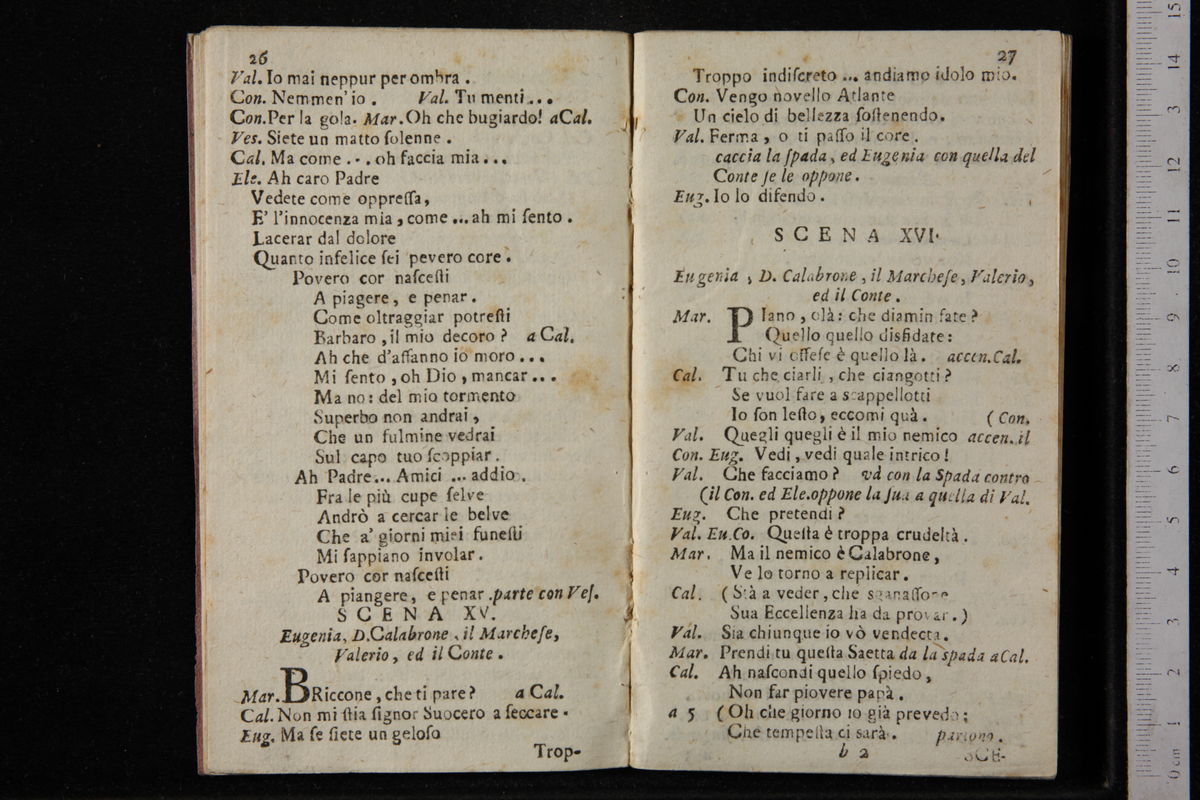 26
Val. Io mai neppur per ombra .
Con. Nemmen' io . Val. Tu menti ...
Con. Per la gola. Mar. Oh che bugiardo! a Cal.
Ves. Siete un matto ſolenne .
Cal. Ma come ... oh faccia mia ...
Ele. Ah caro Padre
Vedete come oppreſſa,
E' l'innocenza mia , come ... ah mi ſento .
Lacerar dal dolore
Quanto infelice ſei pevero core .
Povero cor naſceſti
A piagere , e penar .
Come oltraggiar potreſti
Barbaro , il mio decoro ? a Cal.
Ah che d'affanno io moro ...
Mi ſento , oh Dio , mancar ...
Ma no : del mio tormento
Superbo non andrai ,
Che un fulmine vedrai
Sul capo tuo ſcoppiar .
Ah Padre ... Amici ... addio .
Fra le più cupe ſelve
Andrò a cercar le belve
Che a' giorni miei funeſti
Mi ſappiano involar .
Povero cor naſceſti
A piangere , e penar . parte con Veſ.
SCENA XV.
Eugenia, D. Calabrone , il Marcheſe,
Valerio, ed il Conte .
Mar. BRiccone , che ti pare ? a Cal.
Cal. Non mi ſtia ſignor Suocero a ſeccare .
Eug. Ma ſe ſiete un geloſo
Trop-
27
Troppo indiſcreto ... andiamo idolo mio.
Con. Vengo novello Atlante
Un cielo di bellezza ſoſtenendo.
Val. Ferma , o ti paſſo il core .
caccia la ſpada , ed Eugenia con quella del
Conte ſe le oppone .
Eug. Io lo difendo .
SCENA XVI.
Eugenia , D. Calabrone , il Marcheſe, Valerio,
ed il Conte .
Mar. PIano , olà : che diamin fate ?
Quello quello disfidate :
Chi vi offeſe è quello là . accen. Cal.
Cal. Tu che ciarli , che ciangotti ?
Se vuol fare a scappellotti
Io ſon leſto, eccomi quà . ( Con.
Val. Quegli quegli è il mio nemico accen. il
Con. Eug. Vedi , vedi quale intrico !
Val. Che facciamo ? và con la Spada contro
(il Con. ed Ele. oppone la ſua a quella di Val.
Eug. Che pretendi ?
Val. Eu. Co. Queſta è troppa crudeltà .
Mar. Ma il nemico è Calabrone ,
Ve lo torno a replicar .
Cal. ( Stà a veder , che sganaſſone
Sua Eccellenza ha da provar . )
Val. Sia chiunque io vò vendetta .
Mar. Prendi tu queſta Saetta da la spada a Cal.
Cal. Ah naſcondi quello ſpiedo ,
Non far piovere papà .
a 5 ( Oh che giorno io già prevedo ;
Che tempeſta ci sarà . partono .
b 2
SCE-